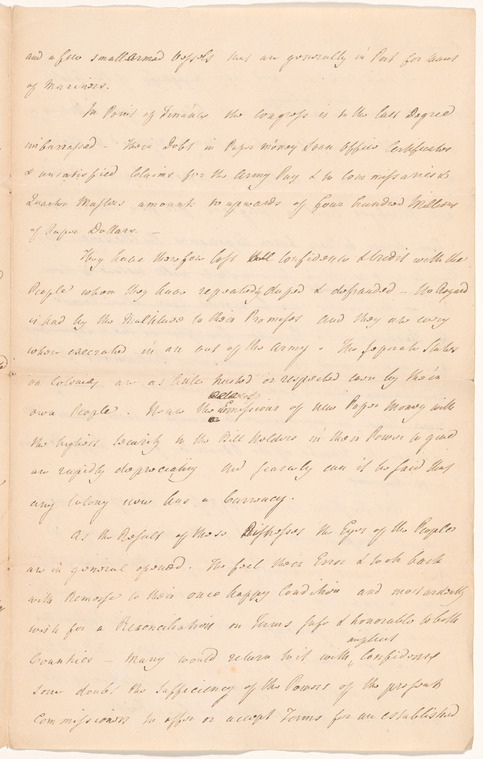 and a few small armed vessels that are generally in Port for want
of Mariners.
In Point of Finance the Congress is to the last Degree
embarrassed. Their Debt in Paper money Loan Office Certificates
& unsatisfied Claims for the Army Pay & to Commissaries &
Quarter Masters amount to upwards of four hundred Millions
of Paper Dollars. —
They have therefore lost all Confidence & Credit with the
People whom they have repeatedly duped & defrauded — No Regard
is had by the Multitude to their Promises and they are every
where execrated in an out of the Army. The separate States
or Colonies are as little trusted or respected even by their
own People. Hence the Emissions of new Paper Money with
the highest security to the Bill Holders in their Power to give
are rapidly depreciating and scarcely can it be said that
any Colony now has a Currency.
As the Result of these Distresses the Eyes of the People
are in general opened. The feel their Error & look back
with Remorse to their once happy Condition and most ardently
wish for a Reconciliation on Terms safe & honorable to both
Countries — Many would return to it with Confidence
some doubt the Sufficiency of the Powers of the present
Commissioners to offer or accept Terms for an established